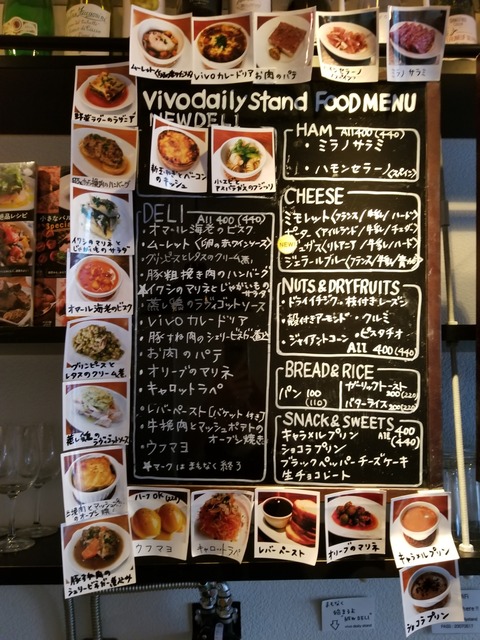 Vivo daily Stand FOOD MENU
NEW DELi
ムーレット
vivoカレードリア
お肉のパテ
ハモンセラーノ
ミラノサラミ
野菜ラグーのラザニア
イワシのマリネと
じゃがいものサラダ
オマール海老のビスク
グリンピースと
レタスのクリーム煮
蒸し鶏のラヴィゴットソース
豚すね肉の
シェリービネガー煮込み
ベーコン
のキッシュ
小エビと
アスパラガスのフジッリ
DELI All 400 (440)
・オマール海老のビスク
・ムーレット(卵の赤ワインソース)
・グリーンピースとレタスのクリーム煮
・豚粗挽き肉のハンバーグ
★イワシのマリネとじゃがいもの
サラダ
・蒸し鶏のラヴィゴットソース
・vivoカレードリア
・豚すね肉のシェリービネガー煮込
・お肉のパテ
・オリーブのマリネ
・キャロットラペ
・レバーペースト[バケット付き]
・牛挽肉とマッシュポテトの
オーブン焼き
・ウフマヨ
★マークはまもなく終了
HAM All 400 (440)
・ミラノサラミ
・ハモンセラーノ(スペイン)
CHEESE All 400 (440)
ミモレット(フランス/牛乳/ハード)
NEW
ジェラールブルー(フランス/牛乳/青カビ)
NUTS&DRYFRUITS
・ドライイチジク・枝付きレーズン
・殻付きアーモンド・クルミ
・ジャイアントコーン・ピスタチオ
All 400 (440)
BREAD&RICE
パン 100 (110)
ガーリックトースト 200 (220)
バターライス 200 (220)
SNACK&SWEETS
キャラメルプリン All 400 (440)
ショコラプリン
ブラックペッパーチーズケーキ
生チョコレート
ハーフOK (220)
ウフマヨ
キャロットラペ
レバーペースト
オリーブのマリネ
キャラメルプリン
ショコラプリン
まもなく
始まる
NEW DELI